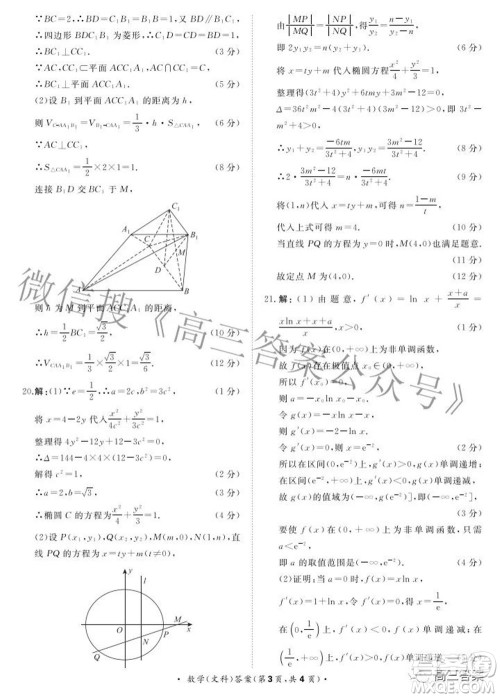 ∵BC=2,∴BD=C₁B₁=B₁B=1,又 BD∥B₁C₁,
∴四边形 BDC₁B₁ 为菱形,∴C₁D=CD=BD=1
∴BC₁⊥CC₁. (3 分)
∵AC,CC₁⊂平面 ACC₁A₁,AC∩CC₁=C,
∴BC₁⊥平面 ACC₁A₁. (5 分)
(2)设 B₁ 到平面 ACC₁A₁ 的距离为 h,
=1/3·h·S△CAA₁, (6 分)
∵AC⊥CC₁,
∴S△CAA₁=1/2×2×1. (8 分)
连接 B₁D 交 BC₁ 于 M,
C₁
A₁
B₁
C
D
M
A
B
的距离,
∴h=1/2BC₁=√3/2. (10 分)
=1/3×√3/2×1=√3/6. (12 分)
20.解:(1)∵e=1/2,∴a=2c,b²=3c², (1 分)
将 x=4-2y 代入 x²/4c²+y²/3c²=1,
整理得 4y²-12y+12-3c²=0,
∴Δ=144-4×4×(12-3c²)=0, (2 分)
解得 c²=1. (2 分)
∴a=2,b=√3,
∴椭圆 C 的方程为x²/4+y²/3=1. (4 分)
(2)设 P(x₁,y₁),Q(x₂,y₂),M(m,0),N(1,n),直
线 PQ 的方程为 x=ty+m(t≠0),
y
l
O
N
P
Q
M
x
由|MP|/|MQ|=|NP|/|NQ|,得y₁/y₂=(n-y₁)/(y₂-n),
即 2y₁y₂=n(y₁+y₂). (6 分)
将 x=ty+m 代入椭圆方程x²/4+y²/3=1,
整理得(3t²+4)y²+6tmy+3m²-12=0,
Δ=36t²m²-4(3t²+4)(3m²-12)>0,即 3t²-m²+4>0.
∴y₁+y₂=-6tm/(3t²+4),y₁y₂=(3m²-12)/(3t²+4). (8 分)
∴2·(3m²-12)/(3t²+4)=n·(-6mt)/(3t²+4).
将(1,n)代入 x=ty+m,可得 n=(1-m)/t,
代入上式可得 m=4. (10 分)
当直线 PQ 的方程为 y=0 时,M(4,0)也满足题意.
(11 分)
故定点 M 为(4,0). (12 分)
21.解:(1)由题意,f′(x)=ln x+(x+a)/x=
(xln x+x+a)/x,x>0. (1 分)
因为 f(x)在定义域上为非单调函数,
故 f(x)存在极值点 x₀,
所以 f′(x)=0,
则 a=-xln x-x.
令 g(x)=-xln x-x,
则 g′(x)=-2-ln x.
令 g′(x)=0,则 x=e⁻². (2 分)
所以在区间(0,e⁻²)上,g′(x)>0,g(x)单调递增;
在区间(e⁻²,+∞)上,g′(x)<0,g(x)单调递减,
故 g(x)的值域为(-∞,g(e⁻²)],即(-∞,e⁻²].
(3 分)
要使 f(x)在定义域上为非单调函数,只需
a<e⁻².
即 a 的取值范围是(-∞,e⁻²). (5 分)
(2)证明:当 a=0 时,f(x)=xln x,
f′(x)=1+ln x,由 f′(x)=0,得 x=1/e.
在(0,1/e)上,f′(x)<0,f(x)单调递减,
在
数学(文科)答案(第 3 页,共 4 页)
微信搜《高三答案公众号》
高三答案